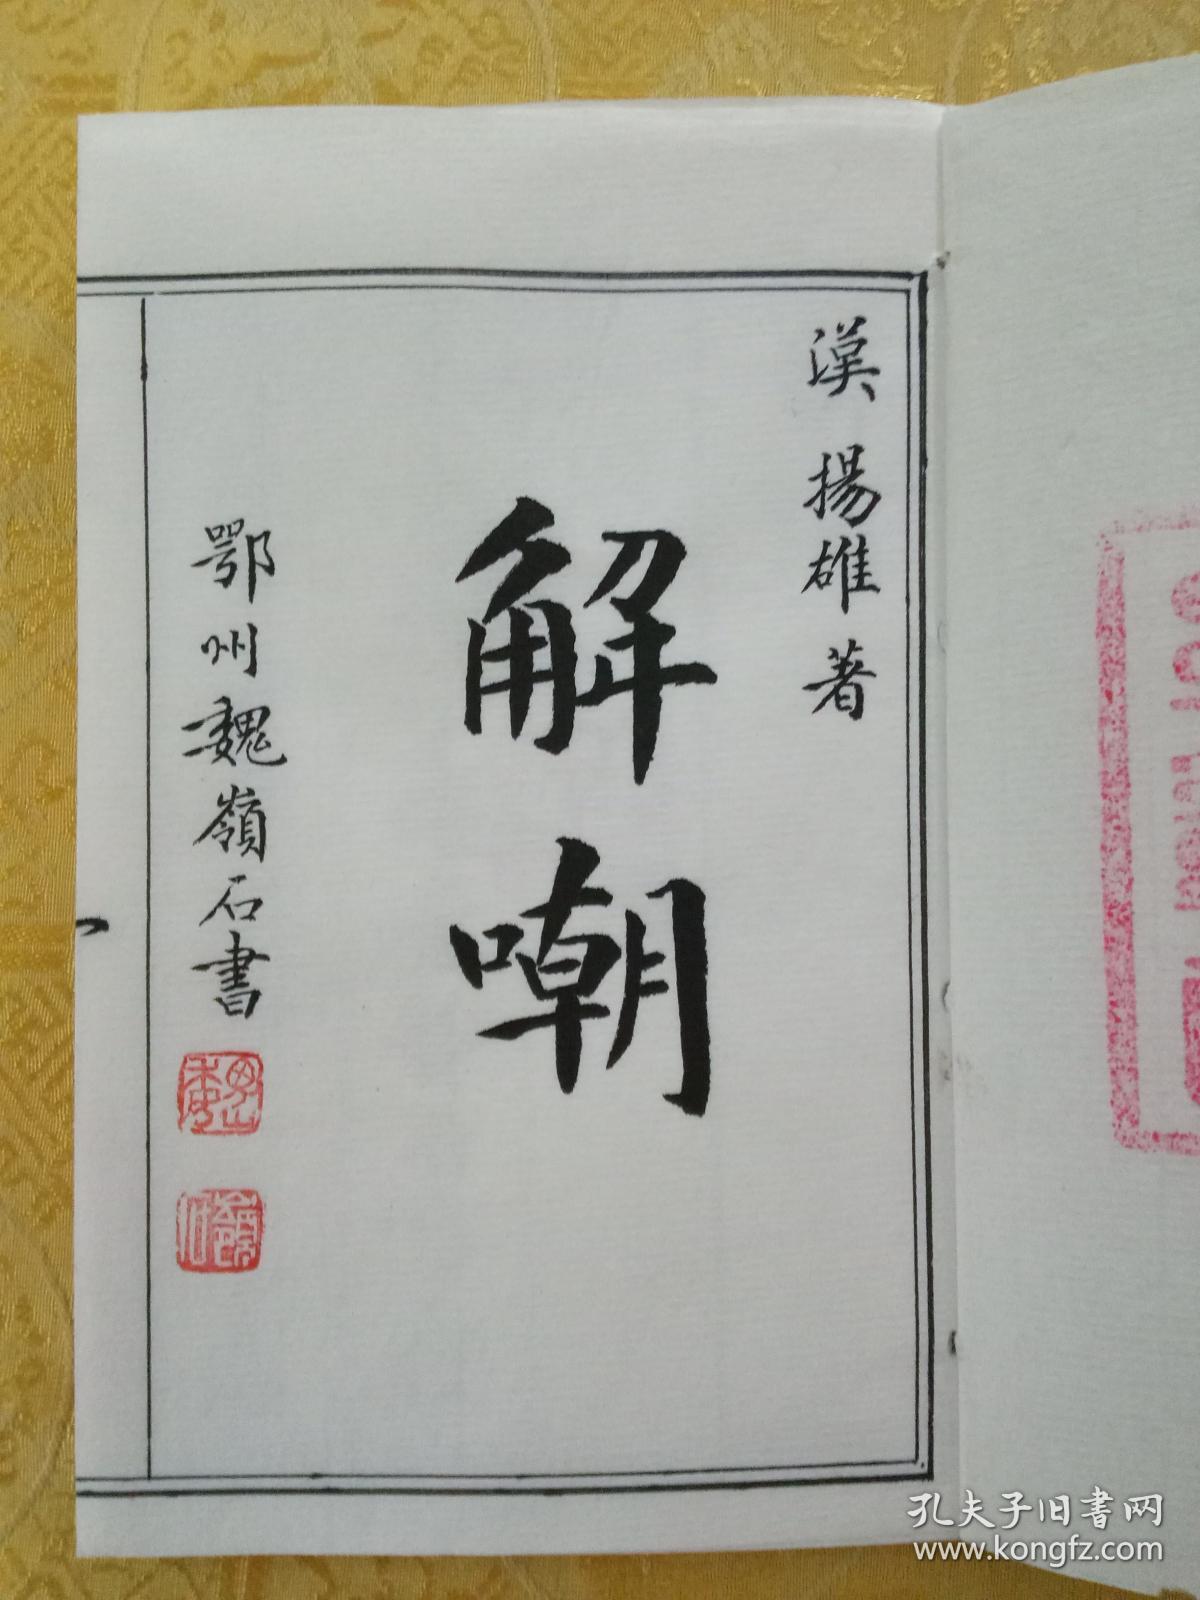 漢 揚雄 著
解嘲
鄂州魏嶺石書
孔夫子旧书网
www.kongfz.com